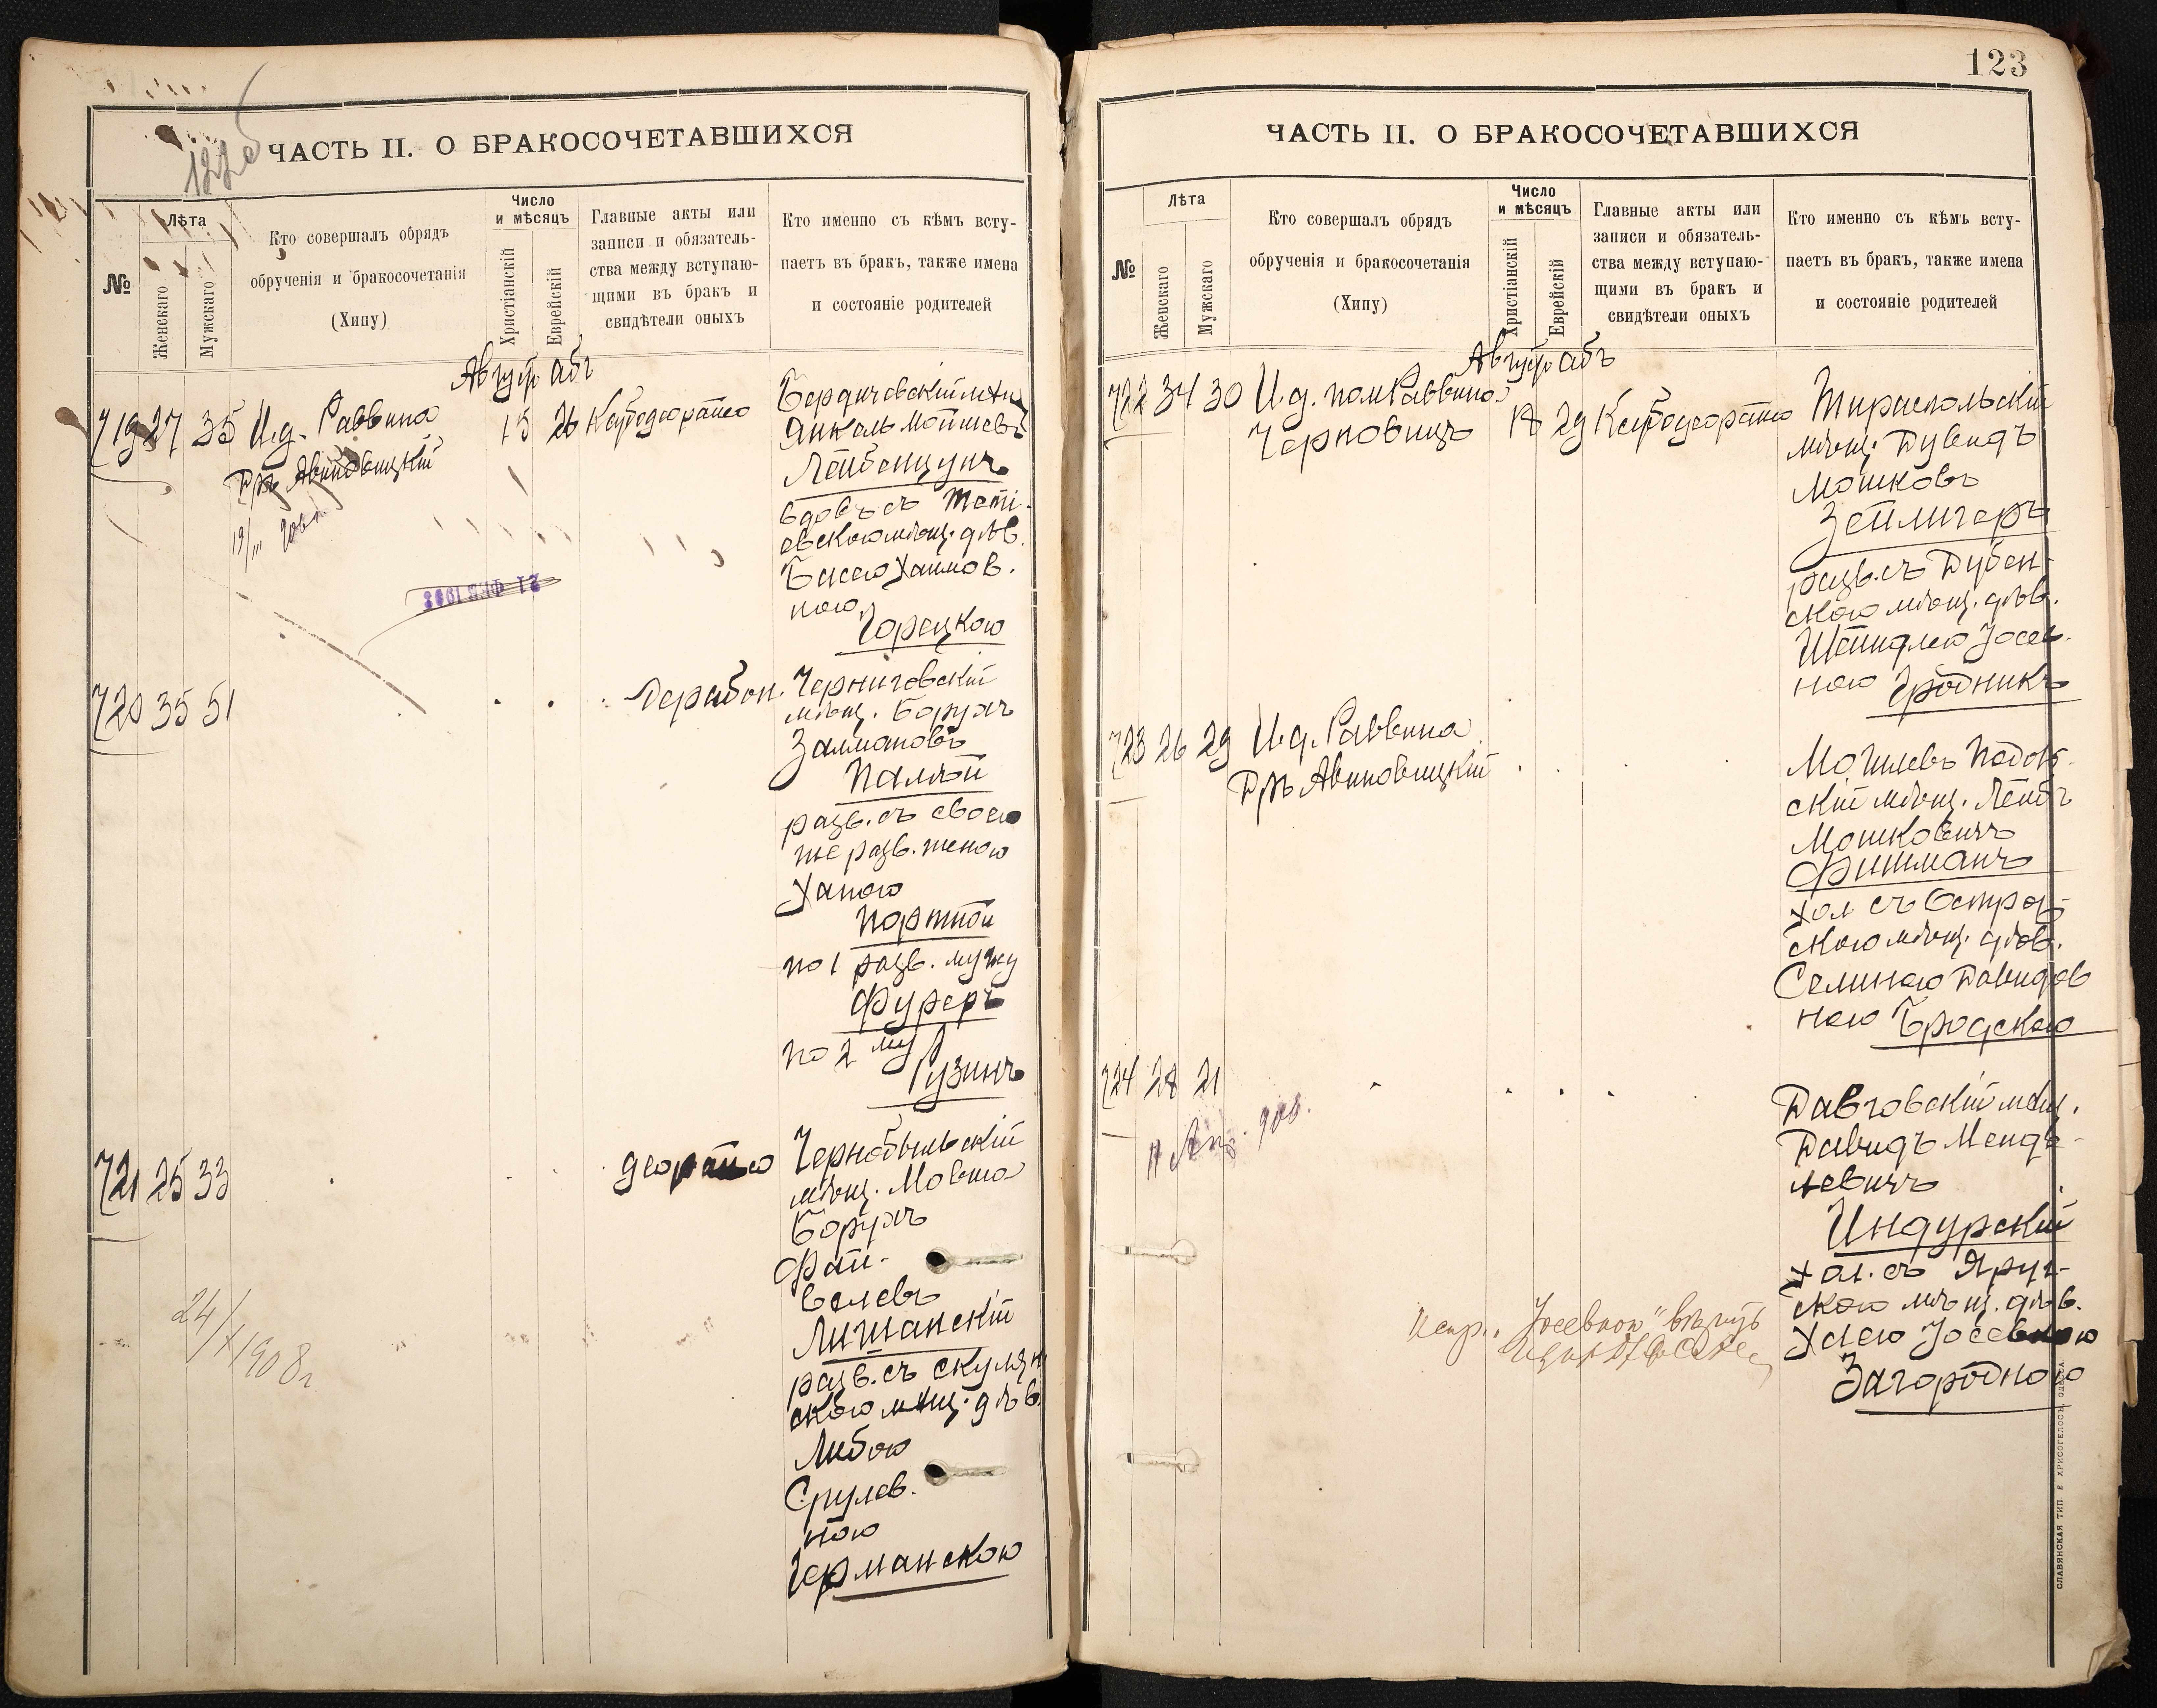 122 об
ЧАСТЬ II. О БРАКОСОЧЕТАВШИХСЯ
№
Лѣта
Женскаго
Мужскаго
Кто совершалъ обрядъ
обрученія и бракосочетанія
(Хипу)
Число
и мѣсяцъ
Христіанскій
Еврейскій
Главные акты или
записи и обязатель-
ства между вступаю-
щими въ бракъ и
свидѣтели оныхъ
Кто именно съ кѣмъ всту-
паетъ въ бракъ, также имена
и состояніе родителей
Август абъ
719 27 35 И.д. Раввина
Д-ръ Авиновицкій
15 26
Бердичевскій мѣщ
Янкель Мошиевъ
Лейбенцунъ
вдов. съ Теті-
евскою мѣщ. дѣв.
Басею Хаимов.
ною
Горецкою
21 ФЕВ 1903
720 35 51
Черниговскій
мѣщ. Борухъ
Залмановъ
Палѣй
разв. съ своею
же разв. женою
Ханою
Портной
по 1 разв. мужу
Фуреръ
по 2 му
Рузинъ
721 25 33
Чернобыльскій
мѣщ. Мовша
Борухъ
Фай-
велевъ
Лишанскій
разв. съ Скулян
скою мѣщ. дѣв.
Либою
Срулев.
ною
Германскою
24/X 1908 г.
123
ЧАСТЬ II. О БРАКОСОЧЕТАВШИХСЯ
№
Лѣта
Женскаго
Мужскаго
Кто совершалъ обрядъ
обрученія и бракосочетанія
(Хипу)
Число
и мѣсяцъ
Христіанскій
Еврейскій
Главные акты или
записи и обязатель-
ства между вступаю-
щими въ бракъ и
свидѣтели оныхъ
Кто именно съ кѣмъ всту-
паетъ въ бракъ, также имена
и состояніе родителей
Август абъ
722 34 30 И.д. пом Раввина
Черновицъ
18 29
Тираспольскій
мѣщ. Дувидъ
Мошковъ
Зейлигеръ
разв. съ Дубен-
скою мѣщ. дѣв.
Шейндлею Іосев.
ною Гродникъ
723 26 29 И.д. Раввина
Д-ръ Авиновицкій
Могилевъ Подол-
скій мѣщ. Лейбъ
Мошковичъ
Фишманъ
хол съ Остро
скою мѣщ. дѣв.
Селиною Давидов
ною Бродскою
724 28 21
Давидъ Менде-
левичъ
Индурскій
хол. съ Яруг-
скою мѣщ. дѣв.
Хаею Іосевною
Загородною
Испр. „Іосевною"
СЛАВЯНСКАЯ ТИП. Е ХРИСОГЕЛОСЪ, ОДЕССА.